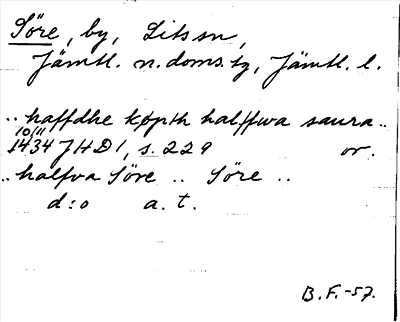 Söre, by, Lits sn,
Jämtl. n. doms. tg, Jämtl. l.
.. haffdhe köpth halffwa saura ..
10/11
1434 JHD 1, s. 229 or.
.. halfva Söre .. Söre ..
d:o a. t.
B.F.-57.